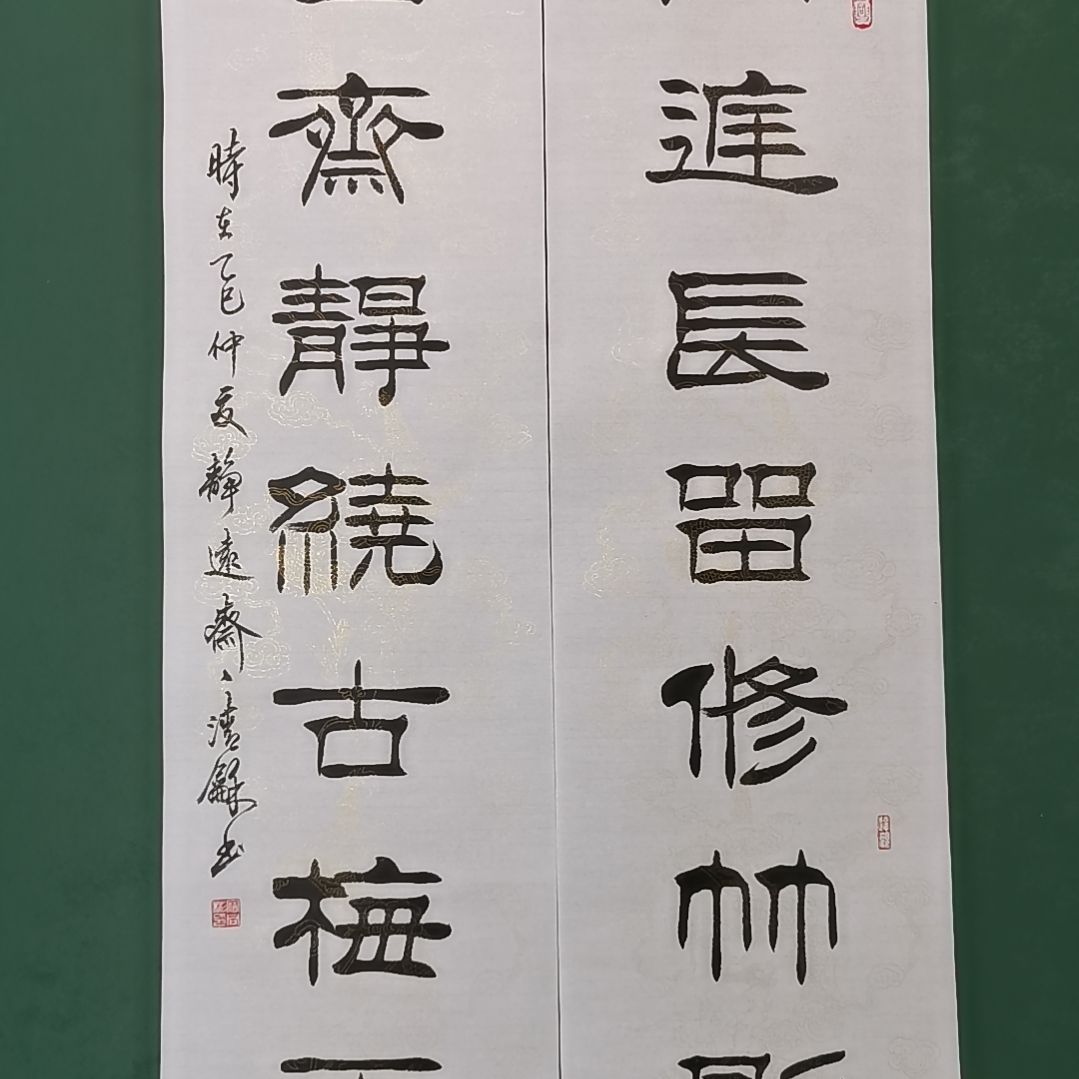 進長留修竹
齋靜繞古梅
時在乙巳仲夏靜遠齋清龢書